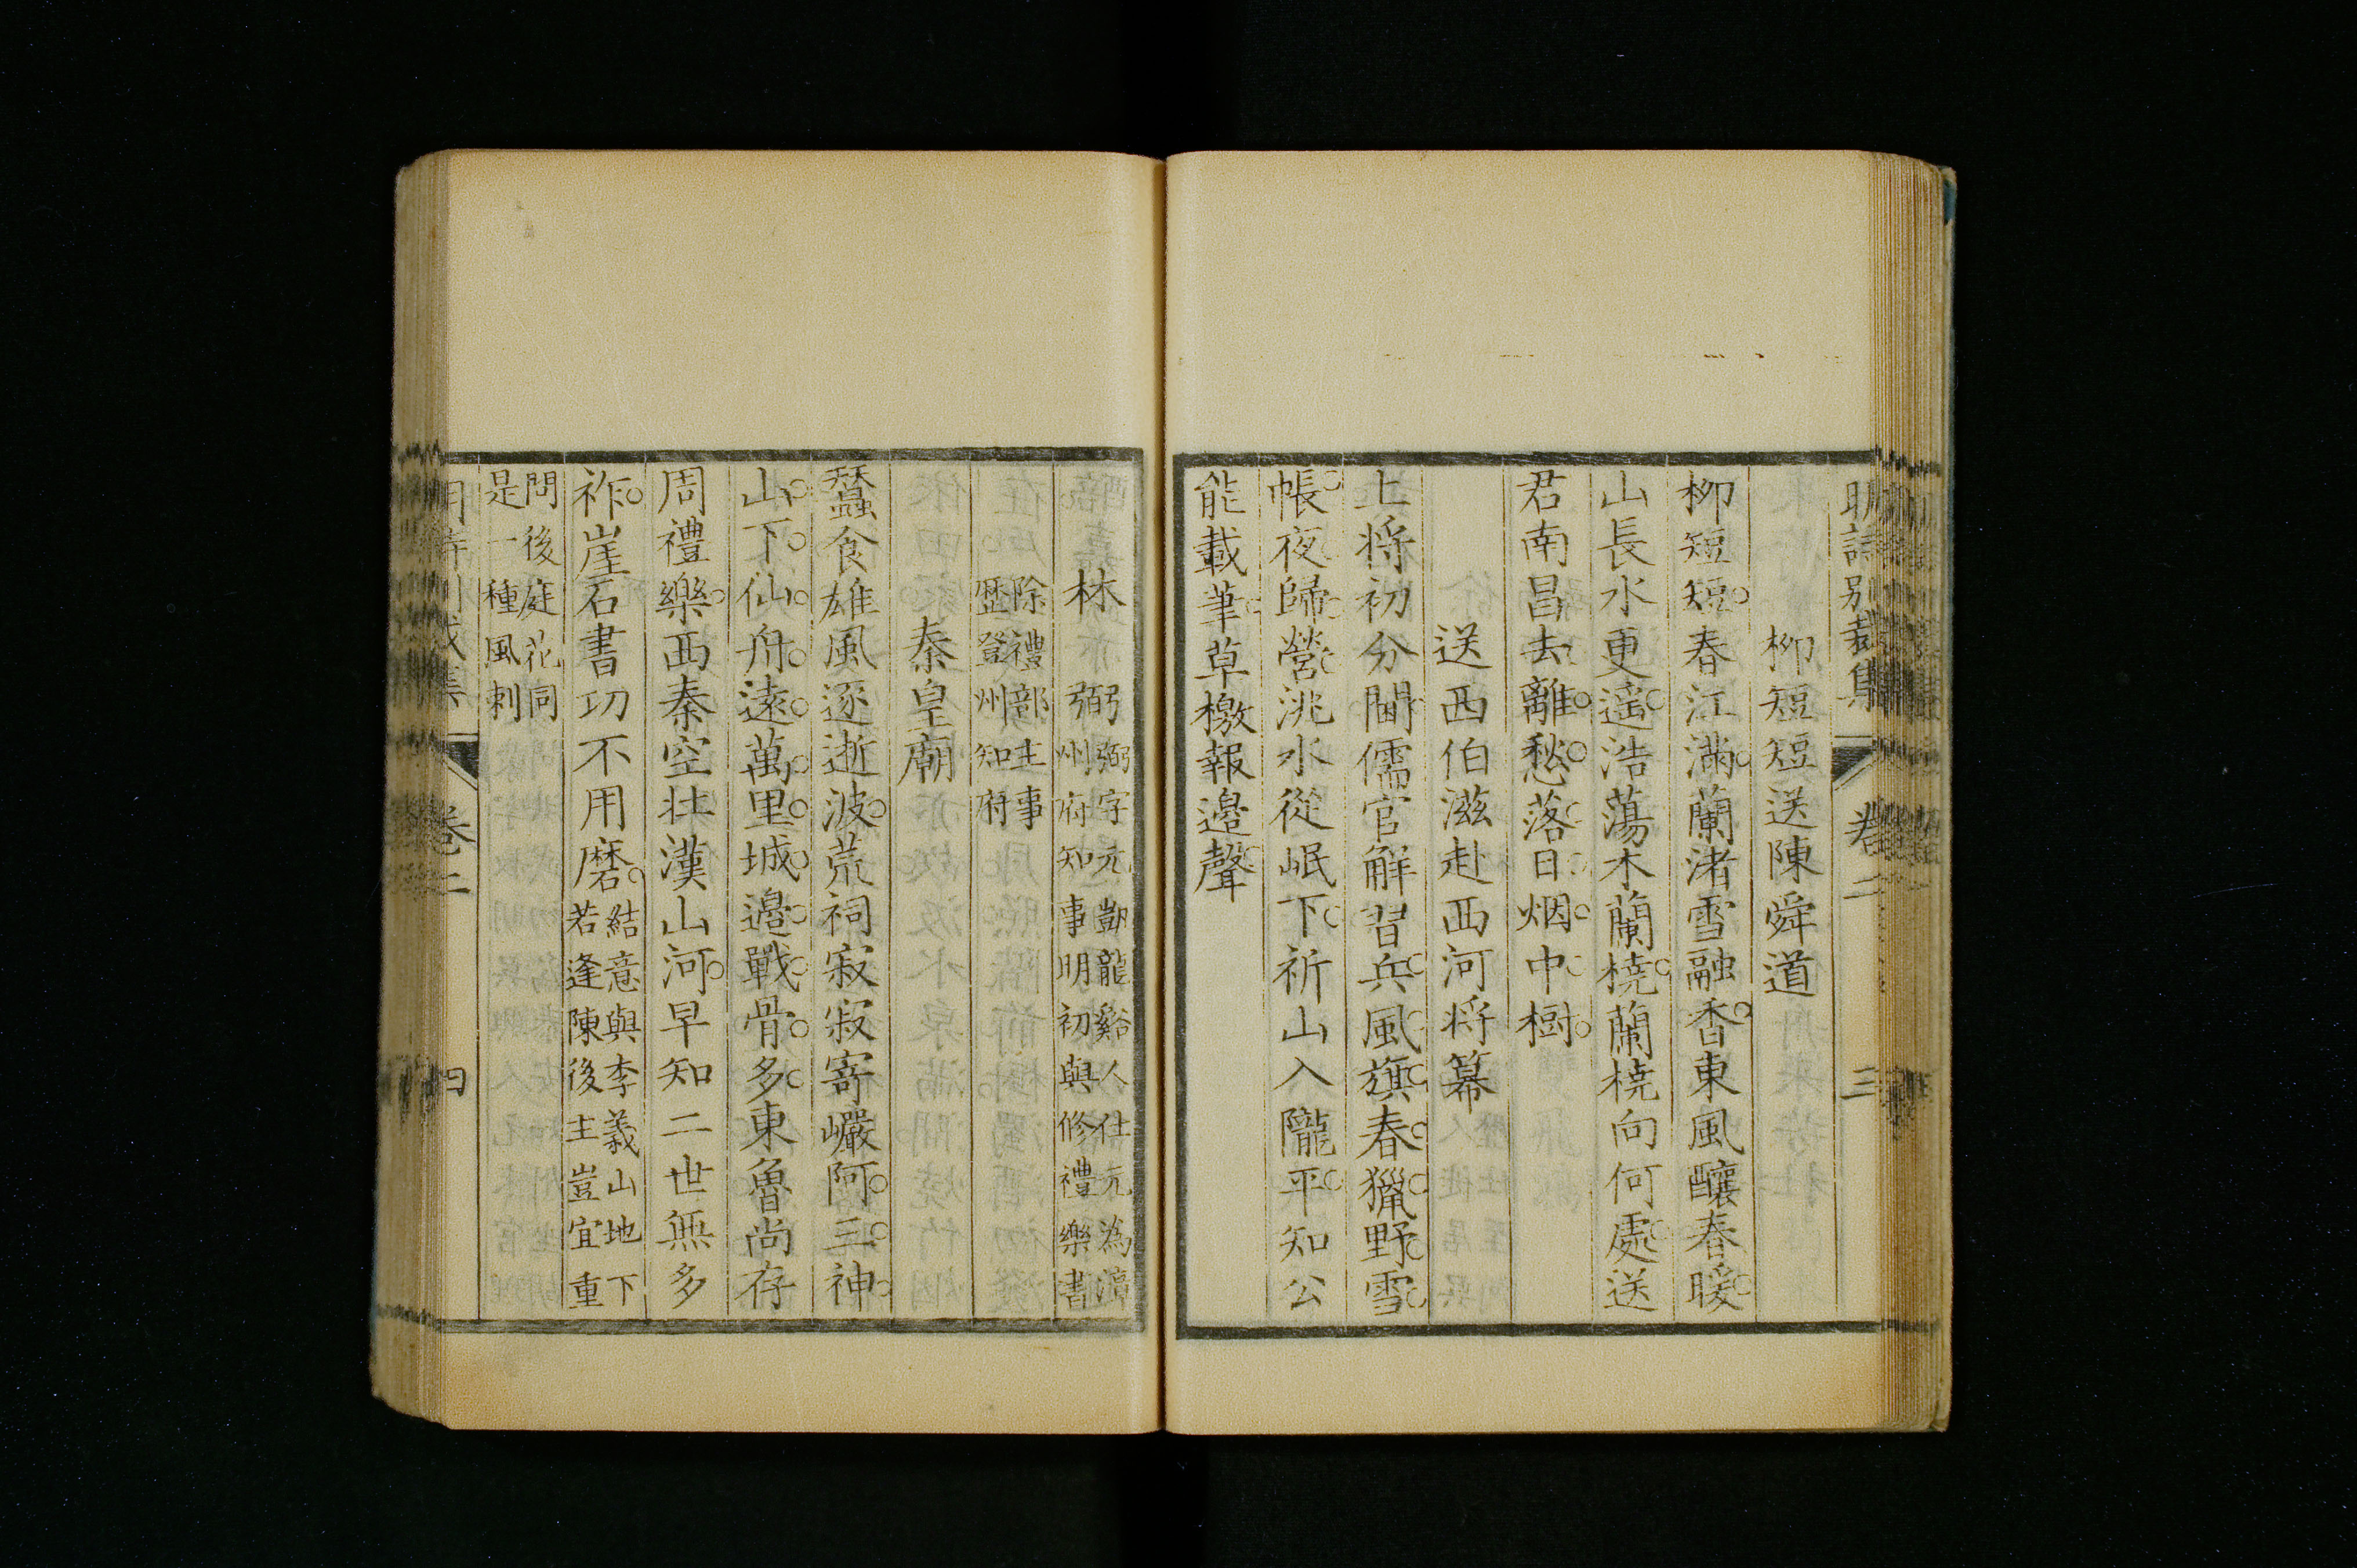 明詩别裁集 卷二 三
柳短短送陳舜道
柳短短春江滿蘭渚雪融香東風釀春暖
山長水更遥浩蕩木蘭橈蘭橈向何處送
君南昌去離愁落日烟中樹
送西伯滋赴西河将幕
上将初分閫儒官解習兵風旗春獵野雪
帳夜歸營洮水從岷下祈山入隴平知公
能載筆草檄報邊聲
林弼 弼字元凱龍谿人仕元為漳
州府知事明初與修禮樂書
除禮部主事
歴登州知府
秦皇廟
蠶食雄風逐逝波荒祠寂寂寄巖阿三神
山下仙舟遠萬里城邊戰骨多東魯尚存
周禮樂西秦空壯漢山河早知二世無多
祚崖石書功不用磨 結意與李義山地下
若逢陳後主豈宜重
問後庭花同
是一種風刺
卷二 四